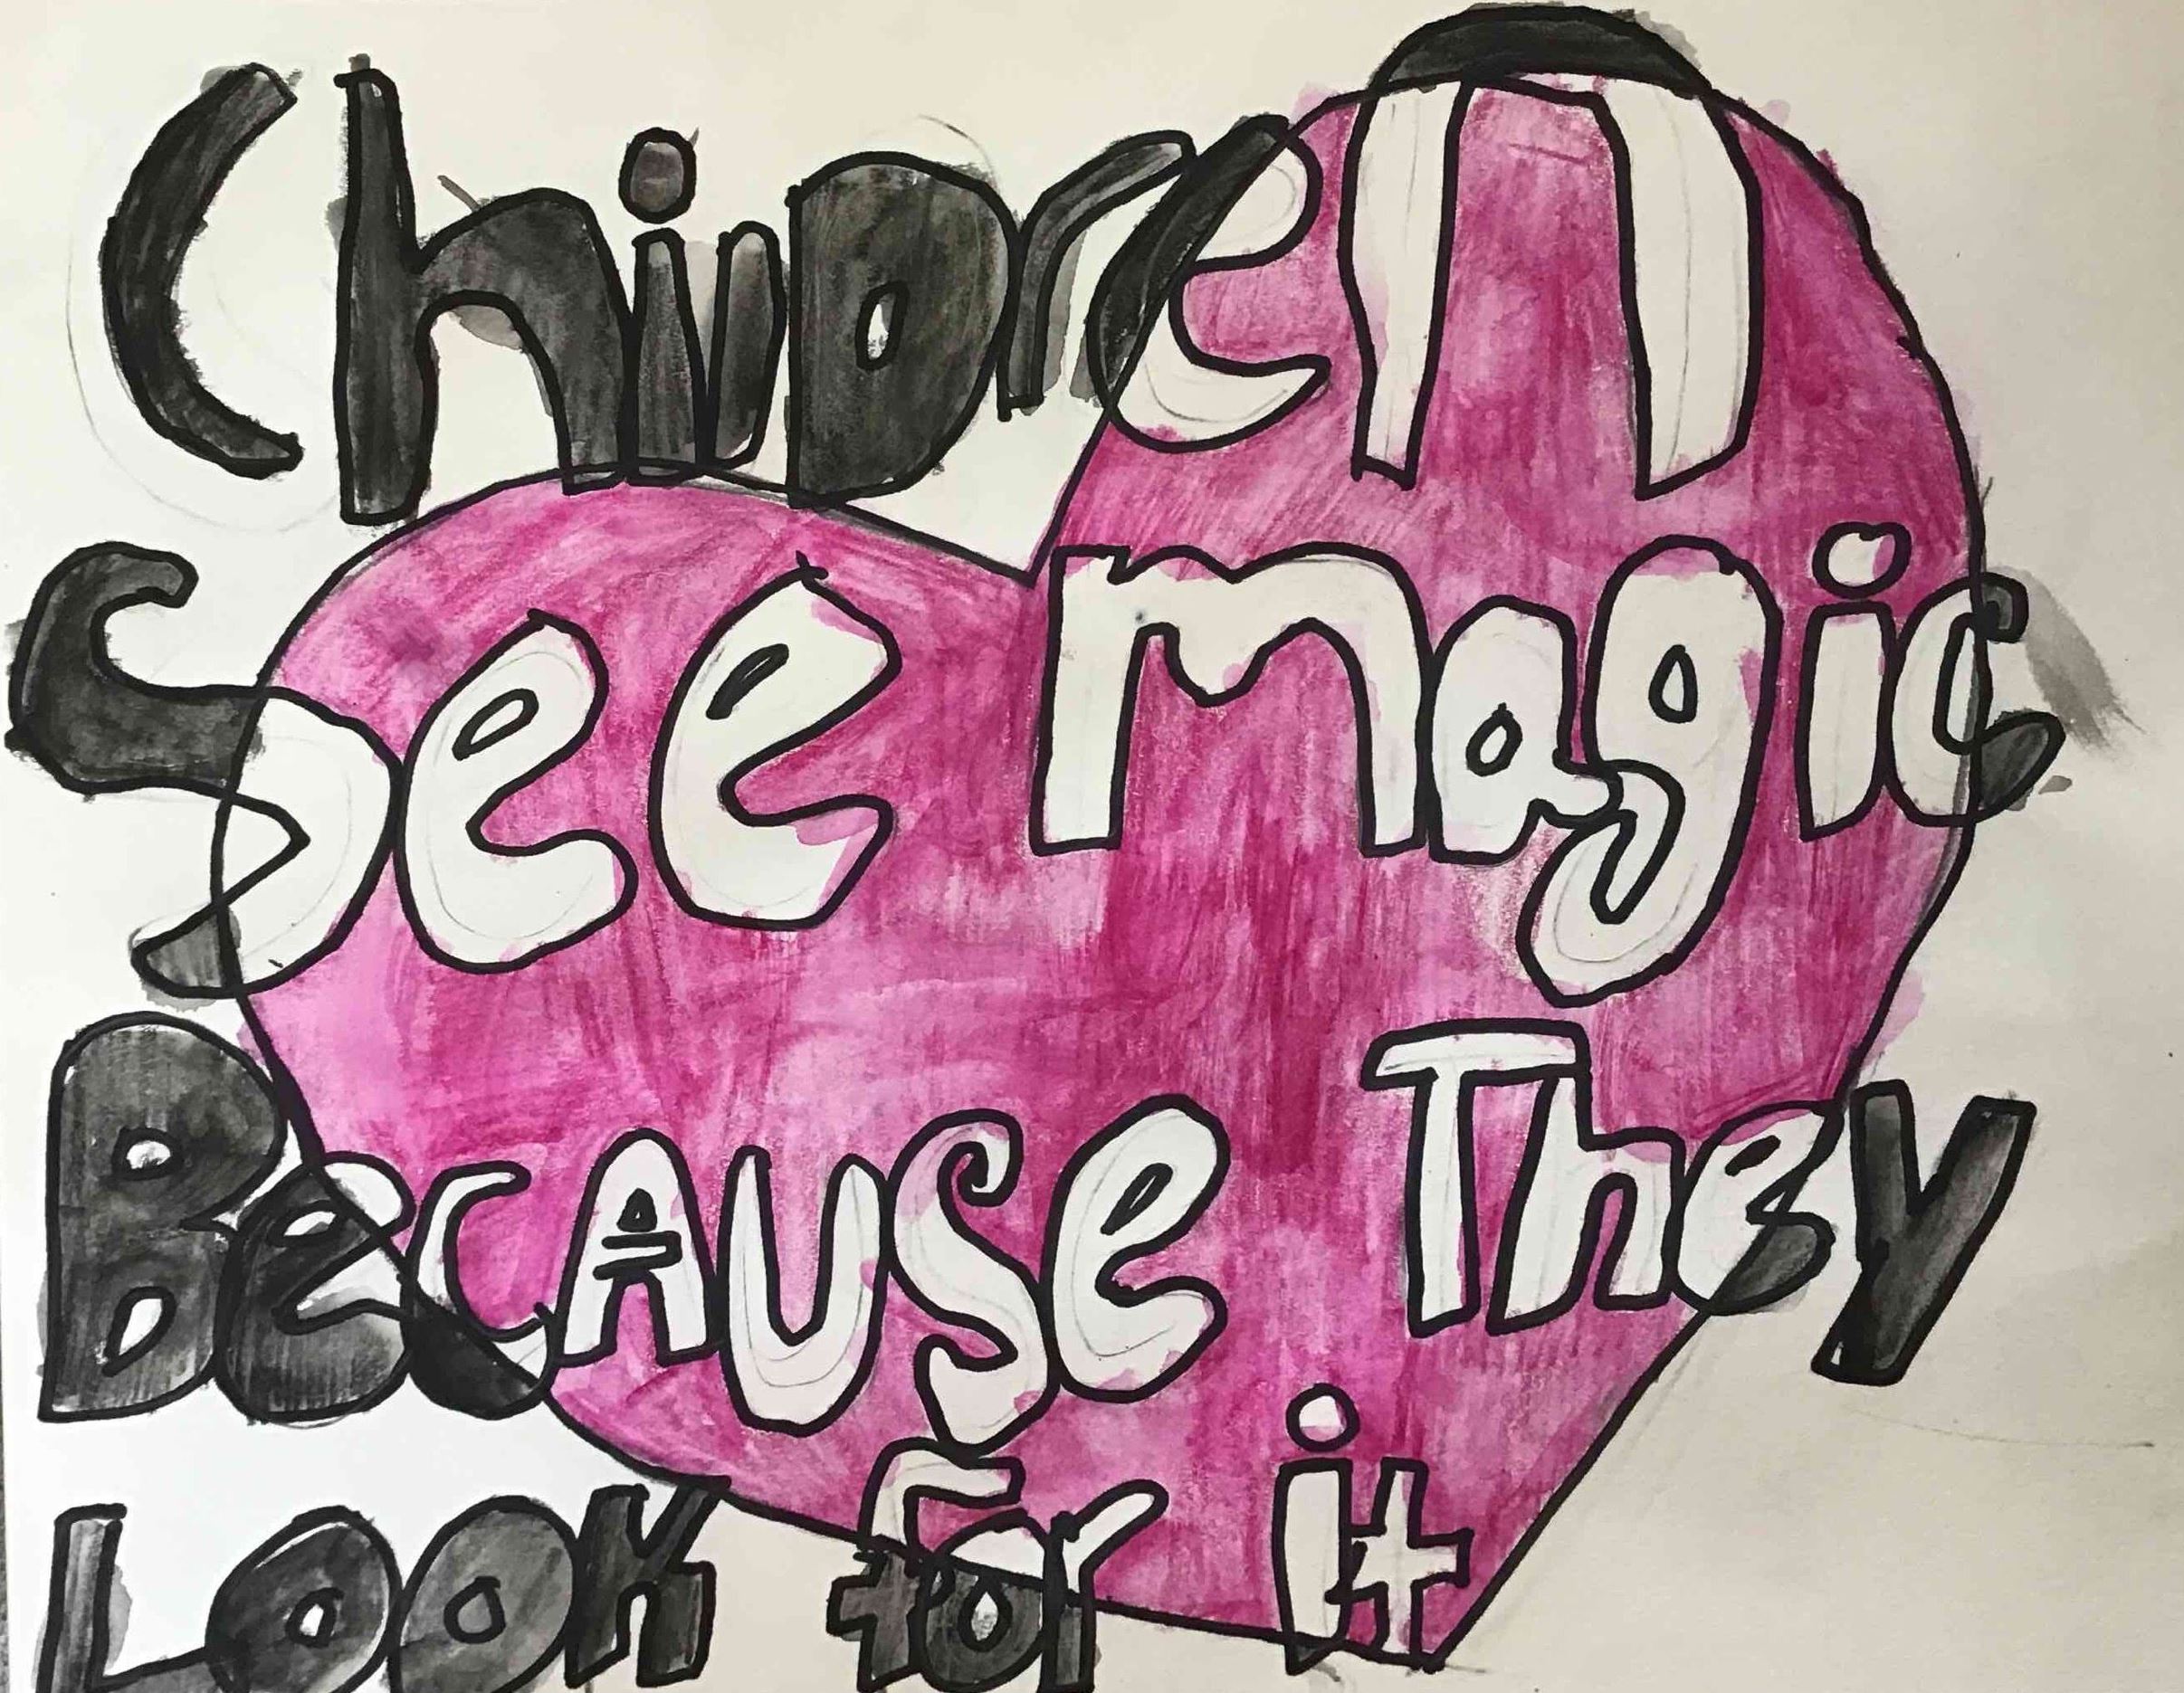 Children
See magic
BecAUSe They
LOOK for it